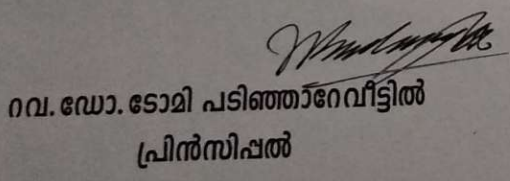 റവ. ഡോ. ടോമി പടിഞ്ഞാറേവീട്ടിൽ
പ്രിൻസിപ്പൽ